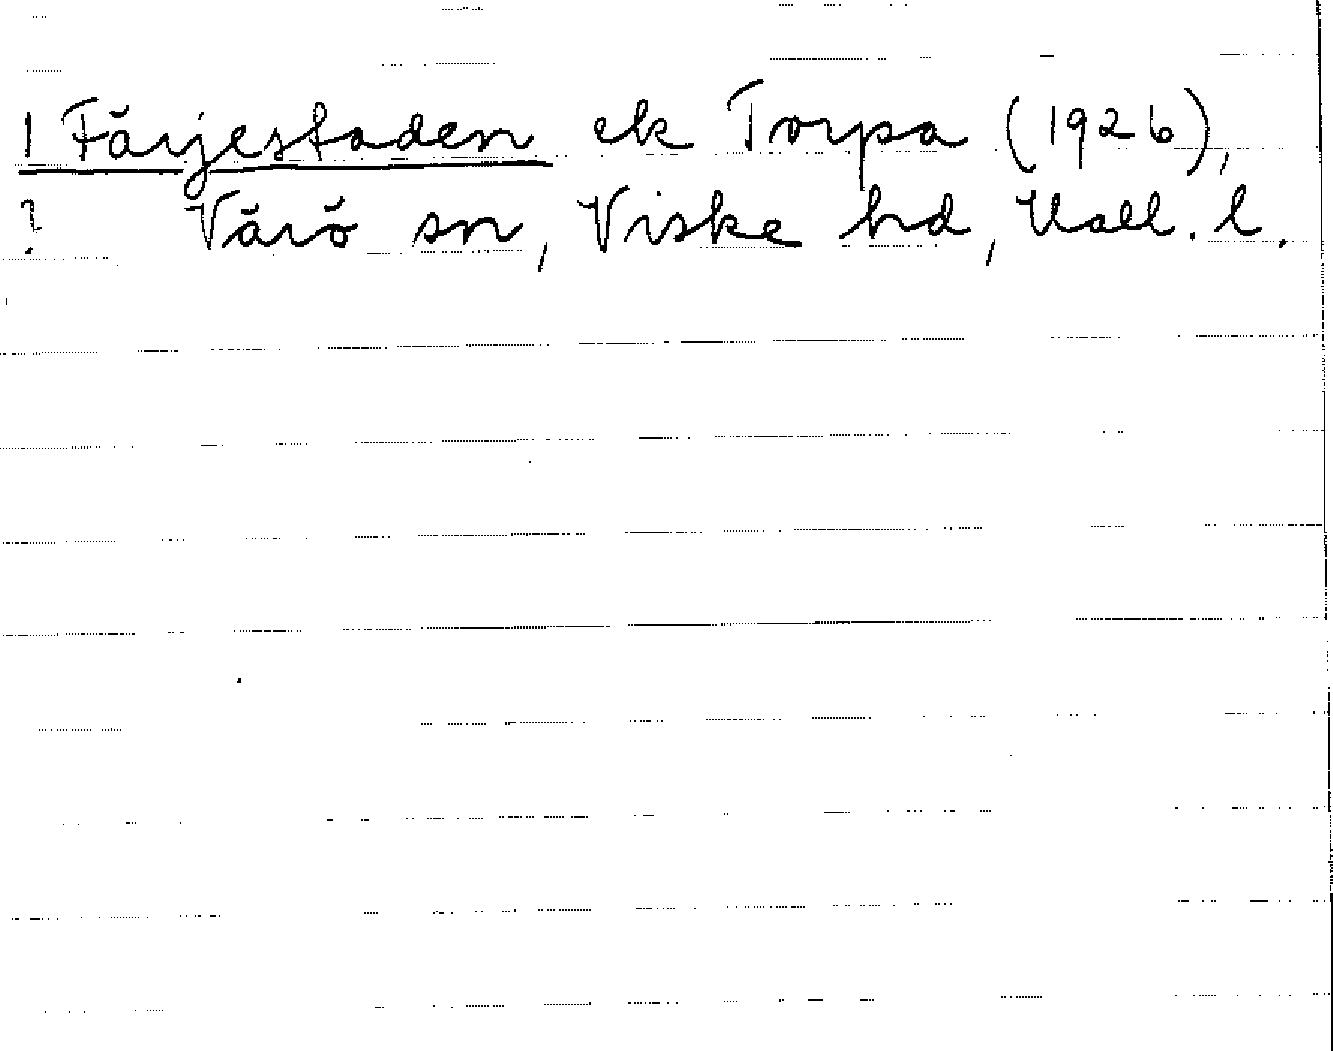 1 Färjestaden ek Torpa (1926),
? Värö sn, Viske hd, Hall. l.